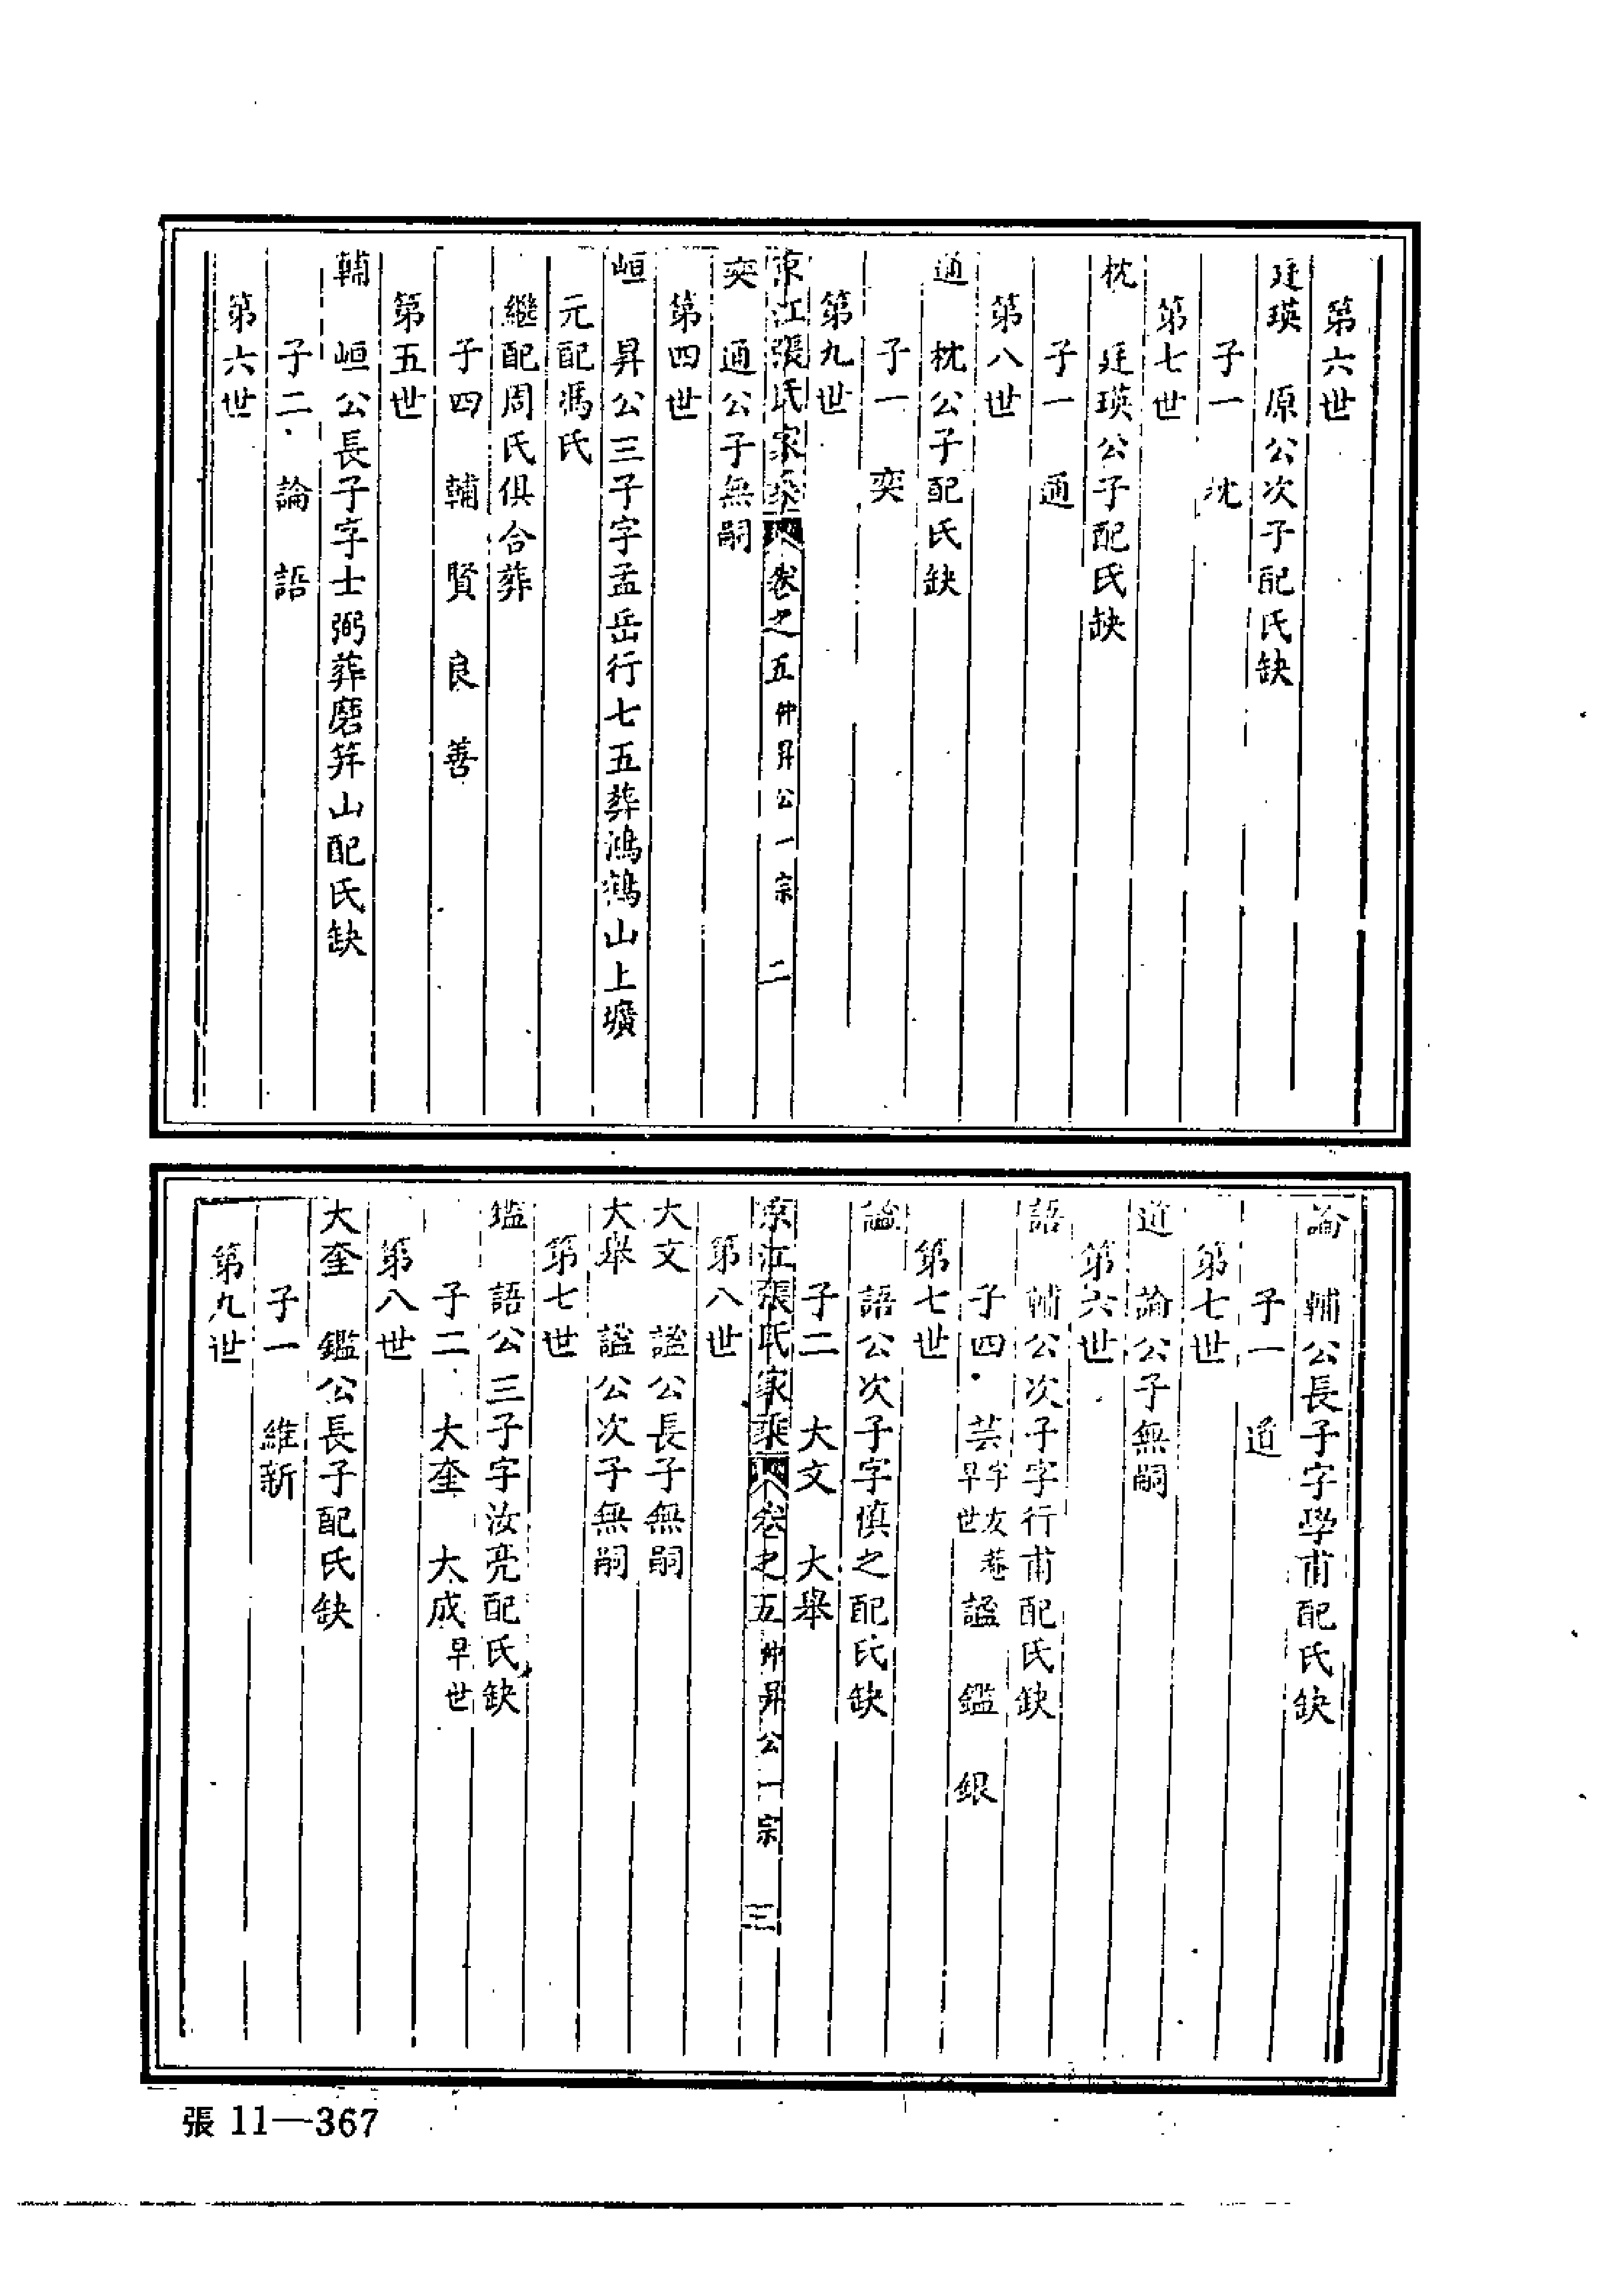 第六世
廷瑛 原公次子配氏缺
子一 枕
第七世
枕 廷瑛公子配氏缺
子一 通
第八世
通 枕公子配氏缺
子一 奕
第九世
京江張氏家乘 卷之五 仲昇公一宗 二
奕 通公子無嗣
第四世
峘 昇公三子字孟岳行七五葬鴻鶴山上壙
元配馮氏
繼配周氏俱合葬
子四 輔 賢 良 善
第五世
輔 峘公長子字士弼葬磨笄山配氏缺
子二 論 語
第六世
論 輔公長子字學甫配氏缺
子一 道
第七世
道 論公子無嗣
第六世
語 輔公次子字行甫配氏缺
子四 芸字友菴早世 謐 鑑 銀
第七世
謐 語公次子字慎之配氏缺
子二 大文 大舉
京江張氏家乘 卷之五 仲昇公一宗 三
第八世
大文 謐公長子無嗣
大舉 謐公次子無嗣
第七世
鑑 語公三子字汝亮配氏缺
子二 大奎 大成早世
第八世
大奎 鑑公長子配氏缺
子一 維新
第九世
張 11—367